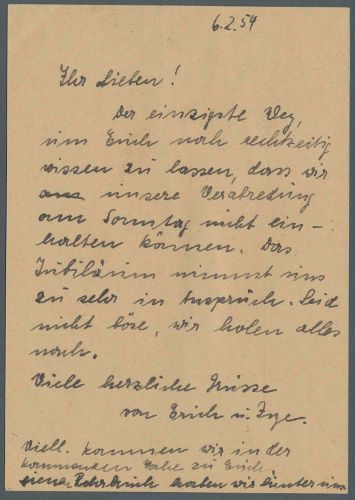 6.2.54
Ihr Lieben!
Der einzigste Weg,
um Euch noch rechtzeitig
wissen zu lassen, dass wir
unsere Verabredung
am Sonntag nicht ein-
halten können. Das
Jubiläum nimmt uns
zu sehr in Anspruch. Seid
nicht böse, wir holen alles
nach.
Viele herzliche Grüsse
von Erich u. Inge.
Viell. kommen wir in der
kommenden Woche zu Euch
haben wir hinter uns